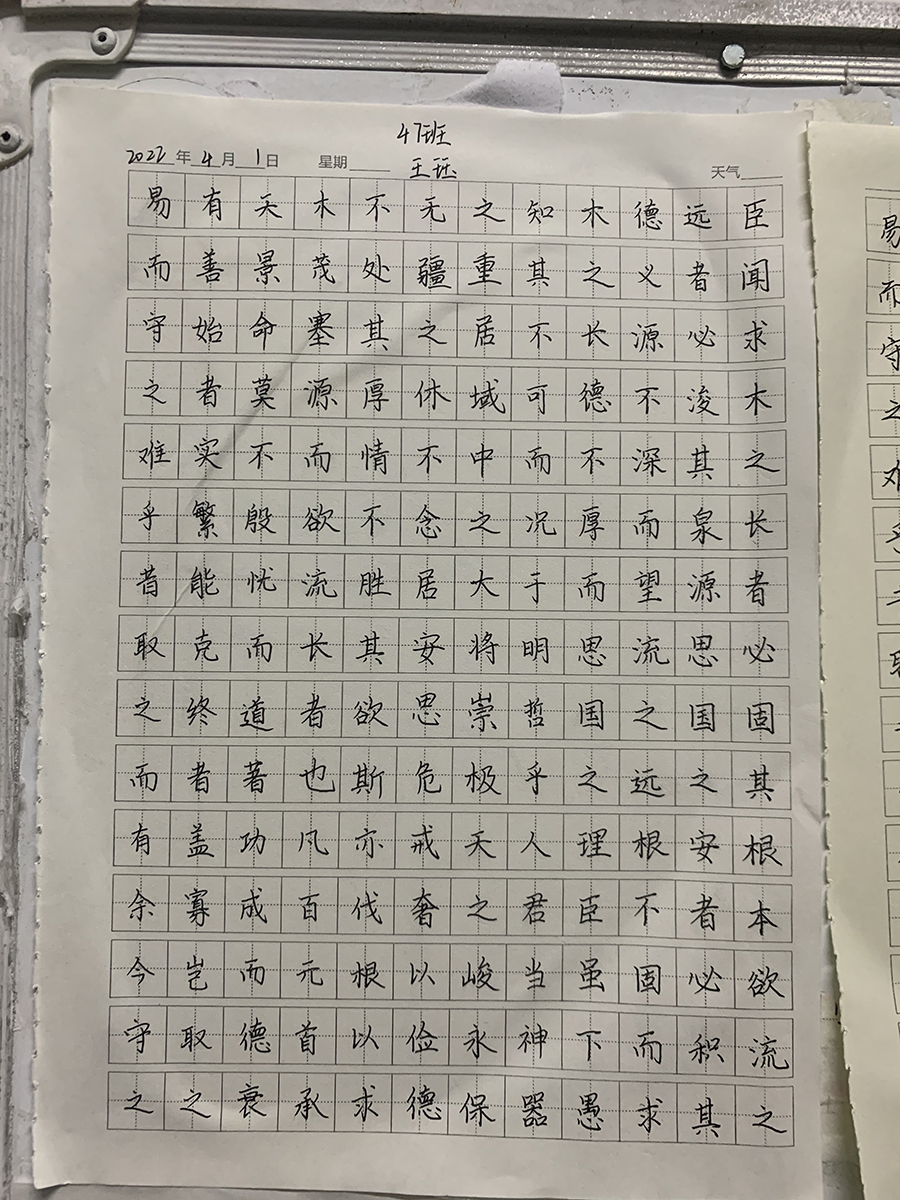 47班
2022年4月1日 星期 王珏 天气
臣闻求木之长者必固其根本欲流之
远者必浚其泉源思国之安者必积其
德义源不深而望流之远根不固而求
木之长德不厚而思国之理臣虽下愚
知其不可而况于明哲乎人君当神器
之重居域中之大将崇极天之峻永保
无疆之休不念居安思危戒奢以俭德
不处其厚情不胜其欲斯亦代根以求
木茂塞源而欲流长者也凡百元首承
天景命莫不殷忧而道著功成而德衰
有善始者实繁能克终者盖寡岂取之
易而守之难乎昔取之而有余今守之
易而守之